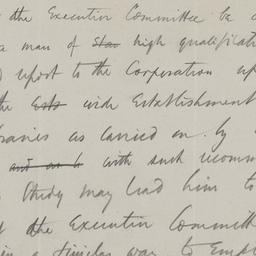 the Executive Committee be
a man of Stan high qualificati
report to the Corporation up
the Ests wide Establishment
braries as carried on by
and on b with such recomm
Study may lead him to
the Executive Committe
in a similar way to Emp